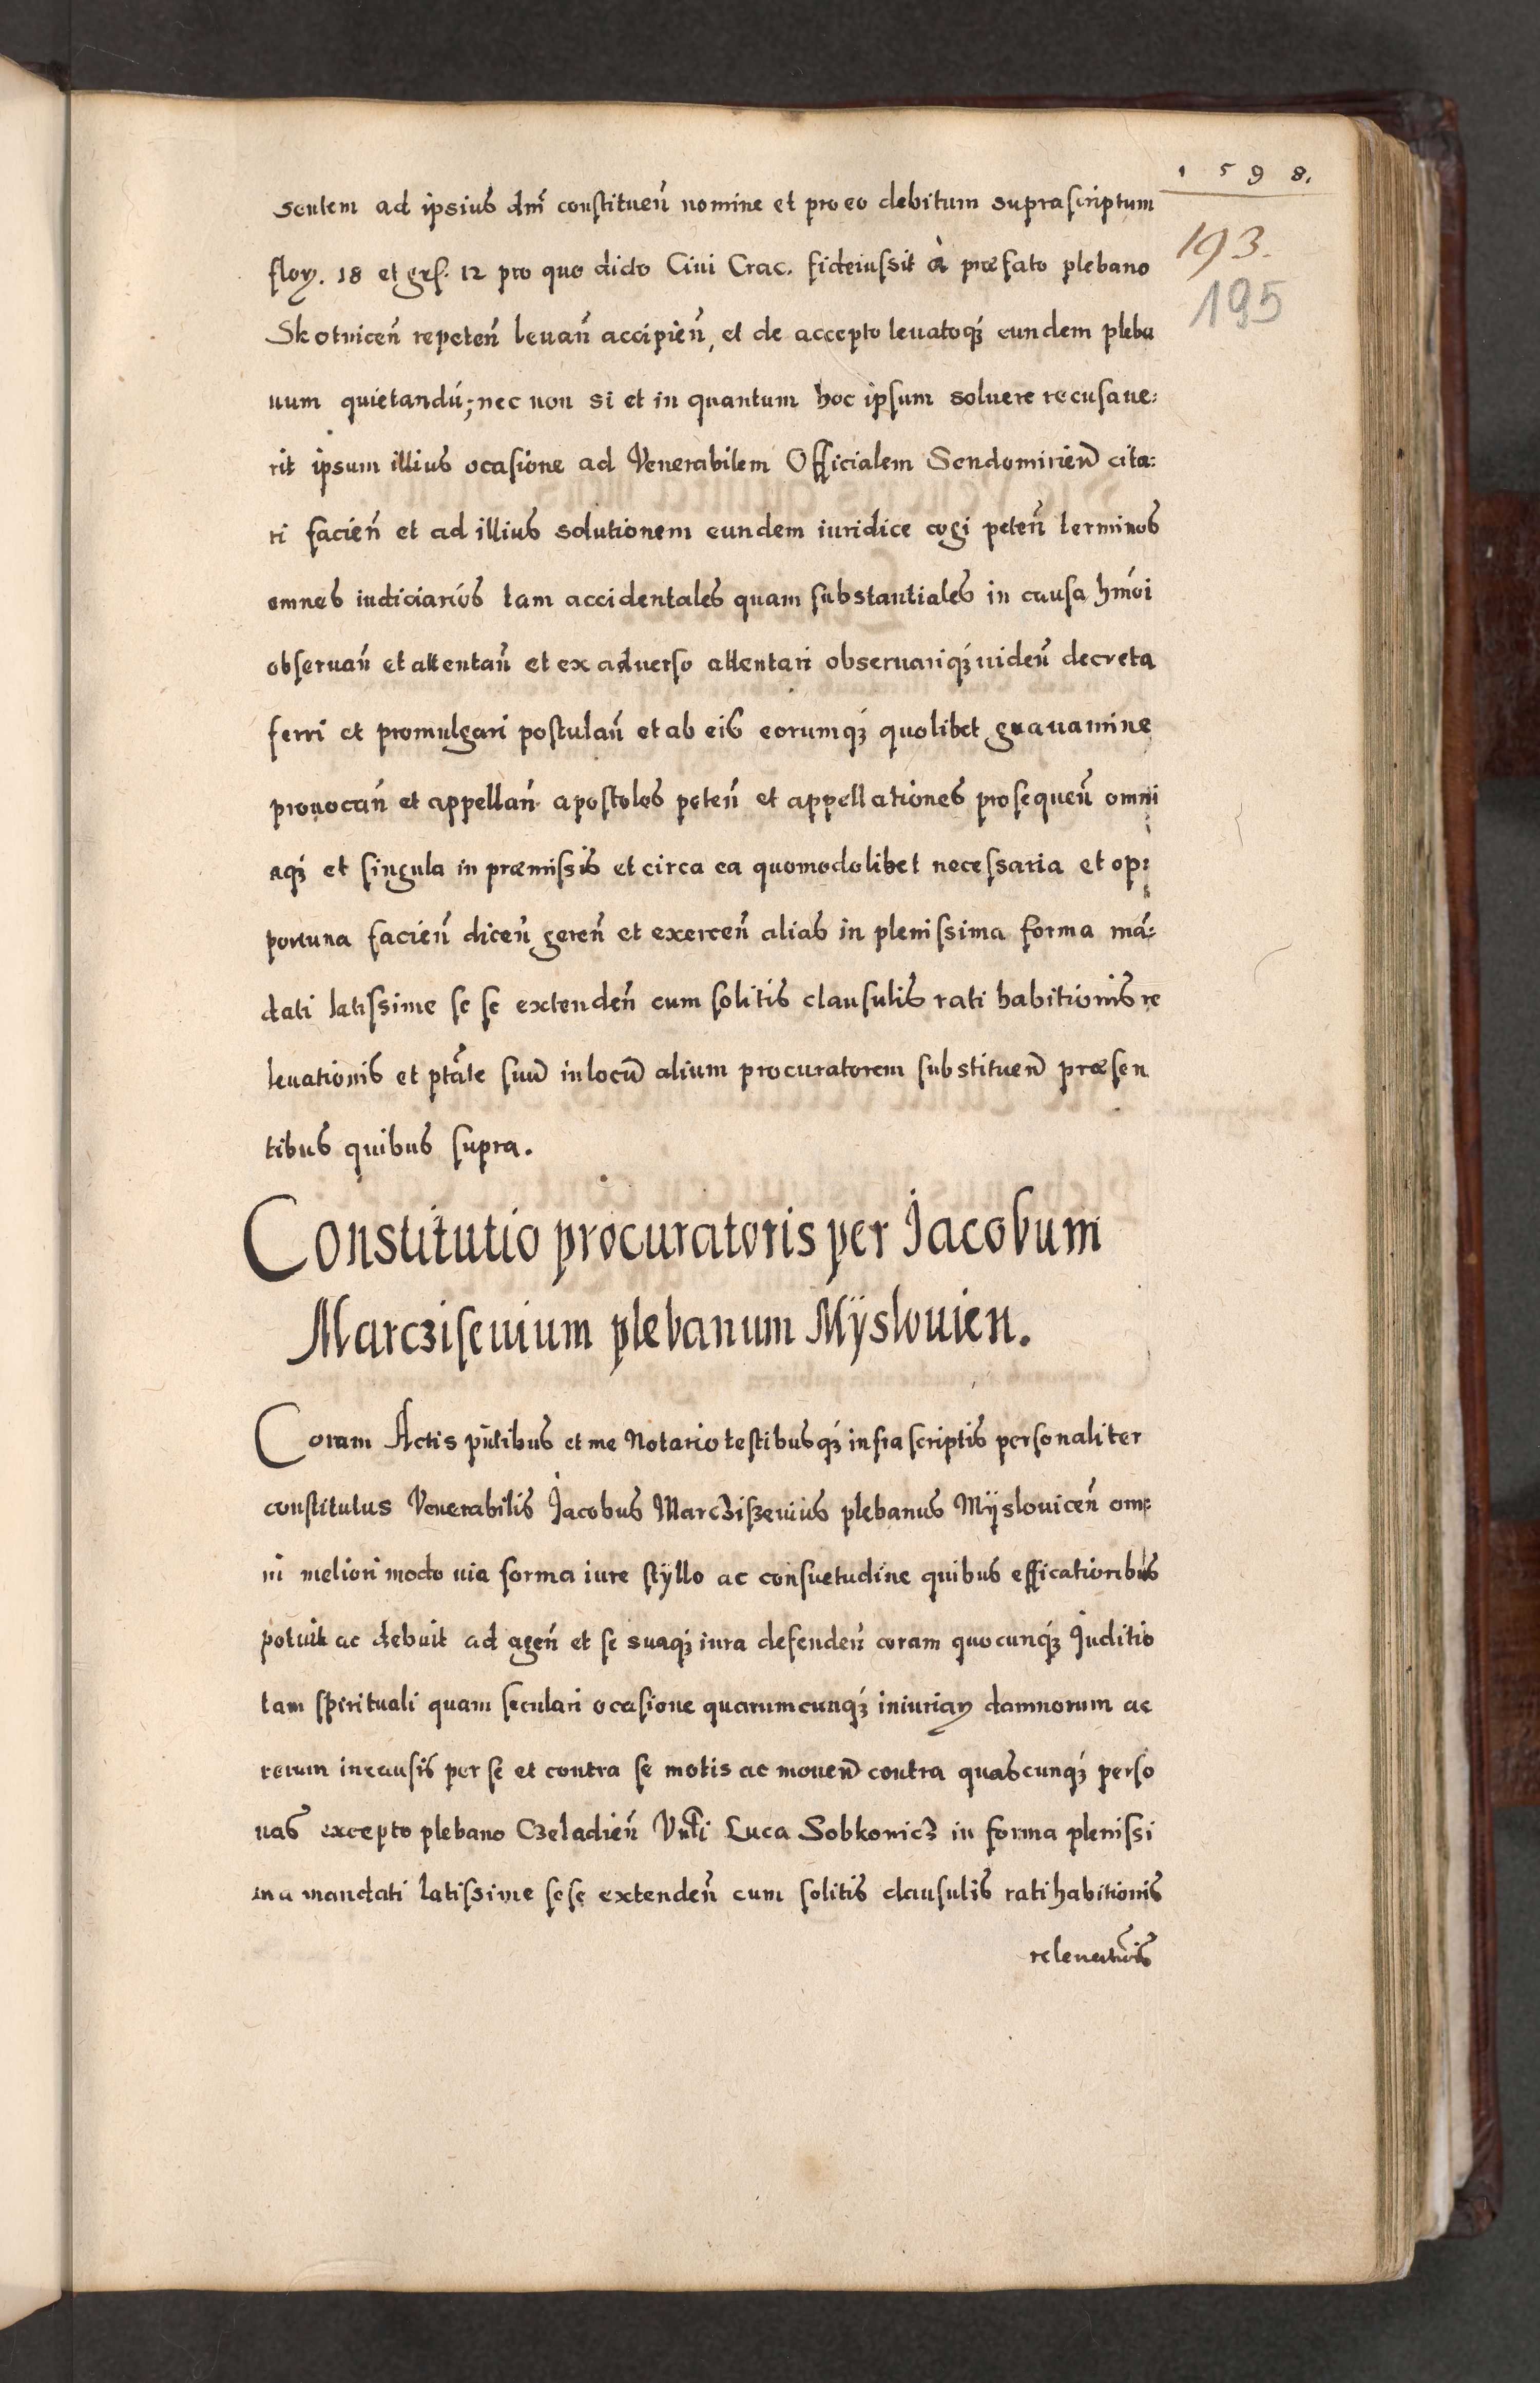 1598.
193.
195
sentem ad ipsius dnĩ constitueñ nomine et pro eo debitum suprascriptum
floꝝ. 18 et grs. 12 pro quo dicto Ciui Crac. fideiussit à præfato plebano
Skotniceñ repeteñ leuañ accipieñ, et de accepto leuatoqꝫ eundem pleba
num quietandũ; nec non si et in quantum hoc ipsum soluere recusaue:
rit ipsum illius ocasione ad Venerabilem Officialem Sendomirieñ cita:
ri facieñ et ad illius solutionem eundem iuridice cogi peteñ terminos
omnes iudiciarios tam accidentales quam substantiales in causa hmõi
obseruañ et attentañ et ex aduerso attentari obseruariqꝫ uideñ decreta
ferri et promulgari postulañ et ab eis eorumqꝫ quolibet grauamine
prouocañ et appellañ apostolos peteñ et appellationes prosequeñ omni
aqꝫ et singula in præmissis et circa ea quomodolibet necessaria et op:
portuna facieñ diceñ gereñ et exerceñ alias in plenissima forma mã:
dati latissime se se extendeñ cum solitis clausulis rati habitionis re
leuationis et ptãte suũ in locũ alium procuratorem substitueñ præsen
tibus quibus supra.
Constitutio procuratoris per Jacobum
Marczisevium plebanum Mÿslouien.
Coram Actis pñtibus et me Notario testibusqꝫ infrascriptis personaliter
constitutus Venerabilis Jacobus Marcziszeuius plebanus Mÿslouiceñ om:
ni meliori modo uia forma iure stÿllo ac consuetudine quibus efficatioribus
potuit ac debuit ad ageñ et se suaqꝫ iura defendeñ coram quocunqꝫ Juditio
tam spirituali quam seculari ocasione quarumcunqꝫ iniuriaꝝ damnorum ac
rerum in causis per se et contra se motis ac moueñ contra quascunqꝫ perso
nas excepto plebano Czeladieñ Vnĩli Luca Sobkonicz in forma plenissi
ma mandati latissime sese extendeñ cum solitis clausulis rati habitionis
releuatiõis